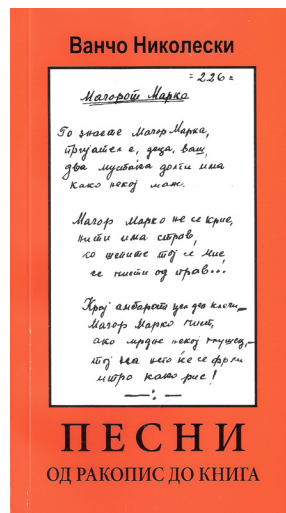 Ванчо Николески
= 226 =
Мачорот Марко
Го знаете Мачор Марка,
пријател е, деца, ваш,
два мустаќа долги има
како некој маж.
Мачор Марко не се крие,
нити има страв,
со шепите тој се мие,
се чисти од прав...
Крај амбарот цел ден клечи
Мачор Марко чист,
ако мрдне некој глушец,
тој на него ќе се фрли
итро како рис!
ПЕСНИ
ОД РАКОПИС ДО КНИГА